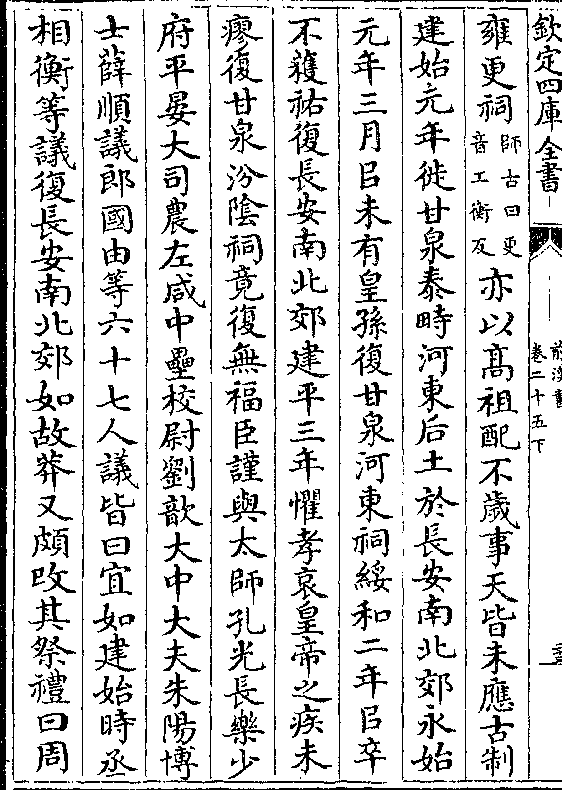 欽定四庫全書
前漢書
卷二十五下
雍更祠師古曰更音工衡反亦以髙祖配不歲事天皆未應古制
建始元年徙甘泉泰畤河東后土於長安南北郊永始
元年三月㠯未有皇孫復甘泉河東祠綏和二年㠯卒
不獲祐復長安南北郊建平三年懼孝哀皇帝之疾未
瘳復甘泉汾隂祠竟復無福臣謹與太師孔光長樂少
府平晏大司農左咸中壘校尉劉歆大中大夫朱陽博
士薛順議郎國由等六十七人議皆曰宜如建始時丞
相衡等議復長安南北郊如故莽又頗改其祭禮曰周